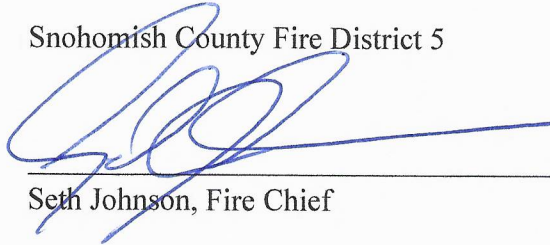 Snohomish County Fire District 5
Seth Johnson, Fire Chief